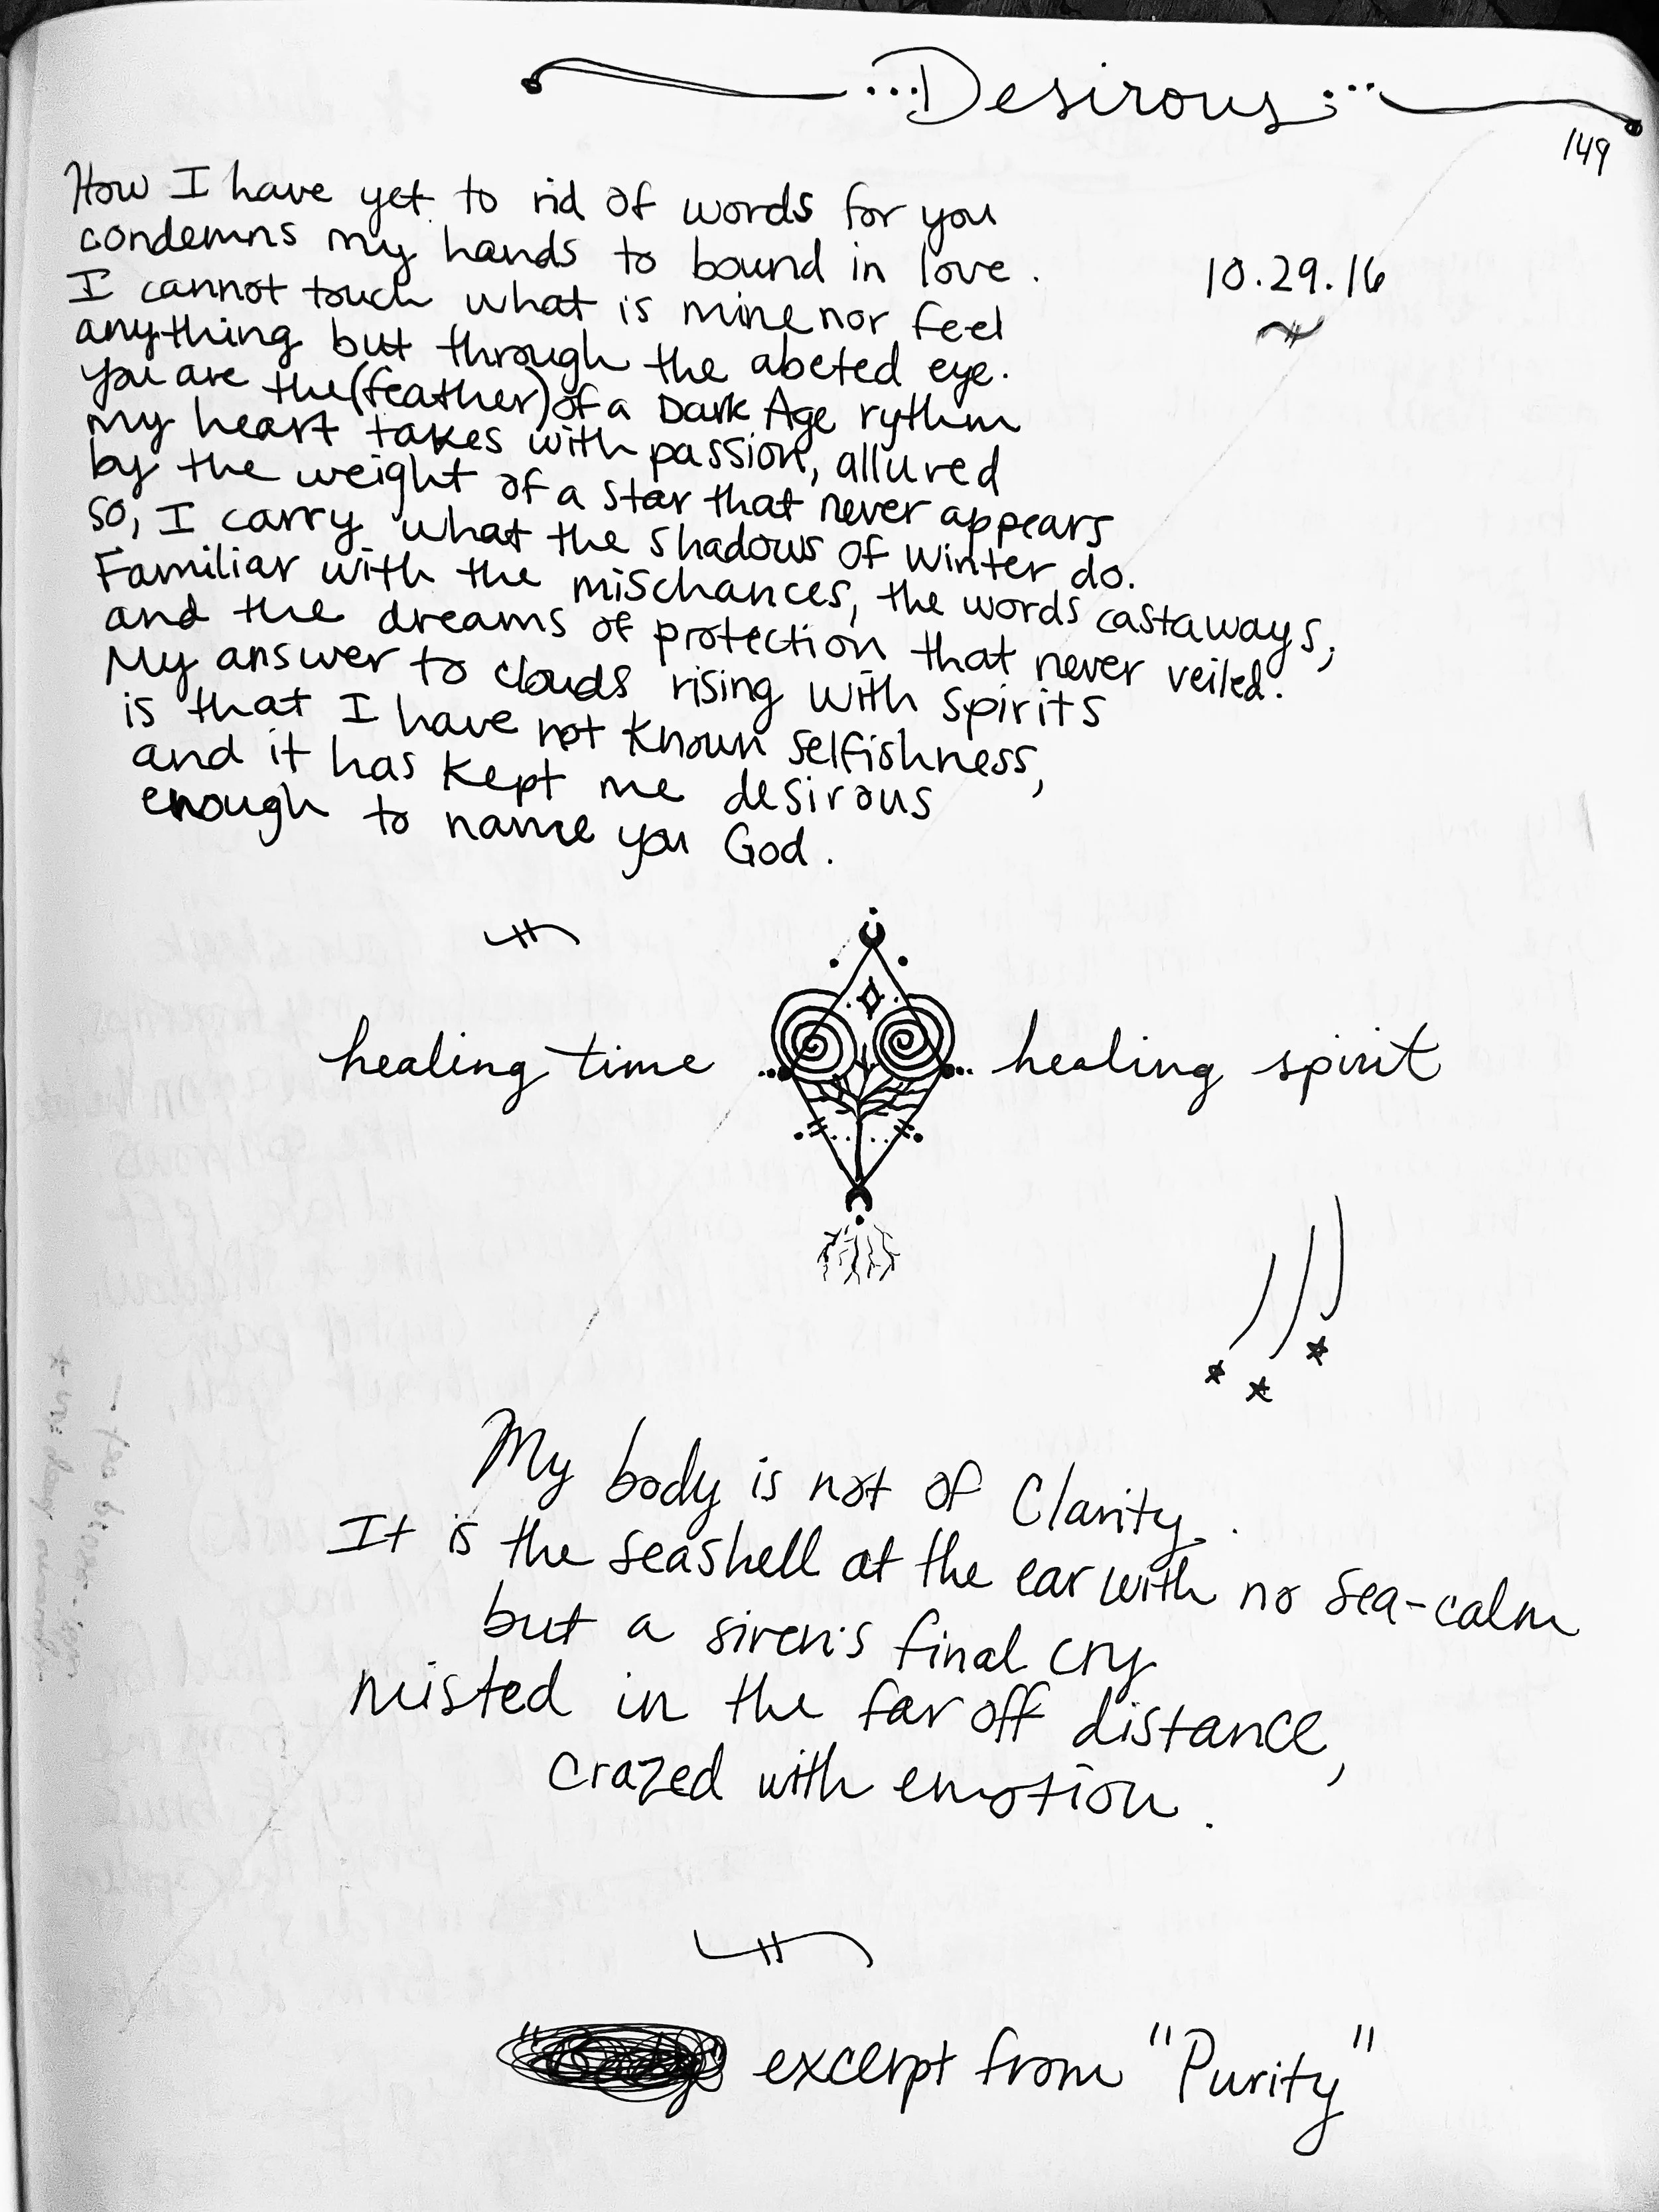 ...Desirous...
149
How I have yet to rid of words for you
condemns my hands to bound in love.
10.29.16
I cannot touch what is mine nor feel
anything but through the abeted eye.
you are the (feather) of a Dark Age rythm
my heart takes with passion, allured
by the weight of a star that never appears
so, I carry what the shadows of winter do.
Familiar with the mischances, the words castaways,
and the dreams of protection that never veiled.
My answer to clouds rising with spirits
is that I have not known selfishness,
and it has kept me desirous
enough to name you God.
healing time healing spirit
My body is not of Clarity.
It is the seashell at the ear with no sea-calm
but a siren's final cry
misted in the far off distance,
crazed with emotion.
excerpt from "Purity"